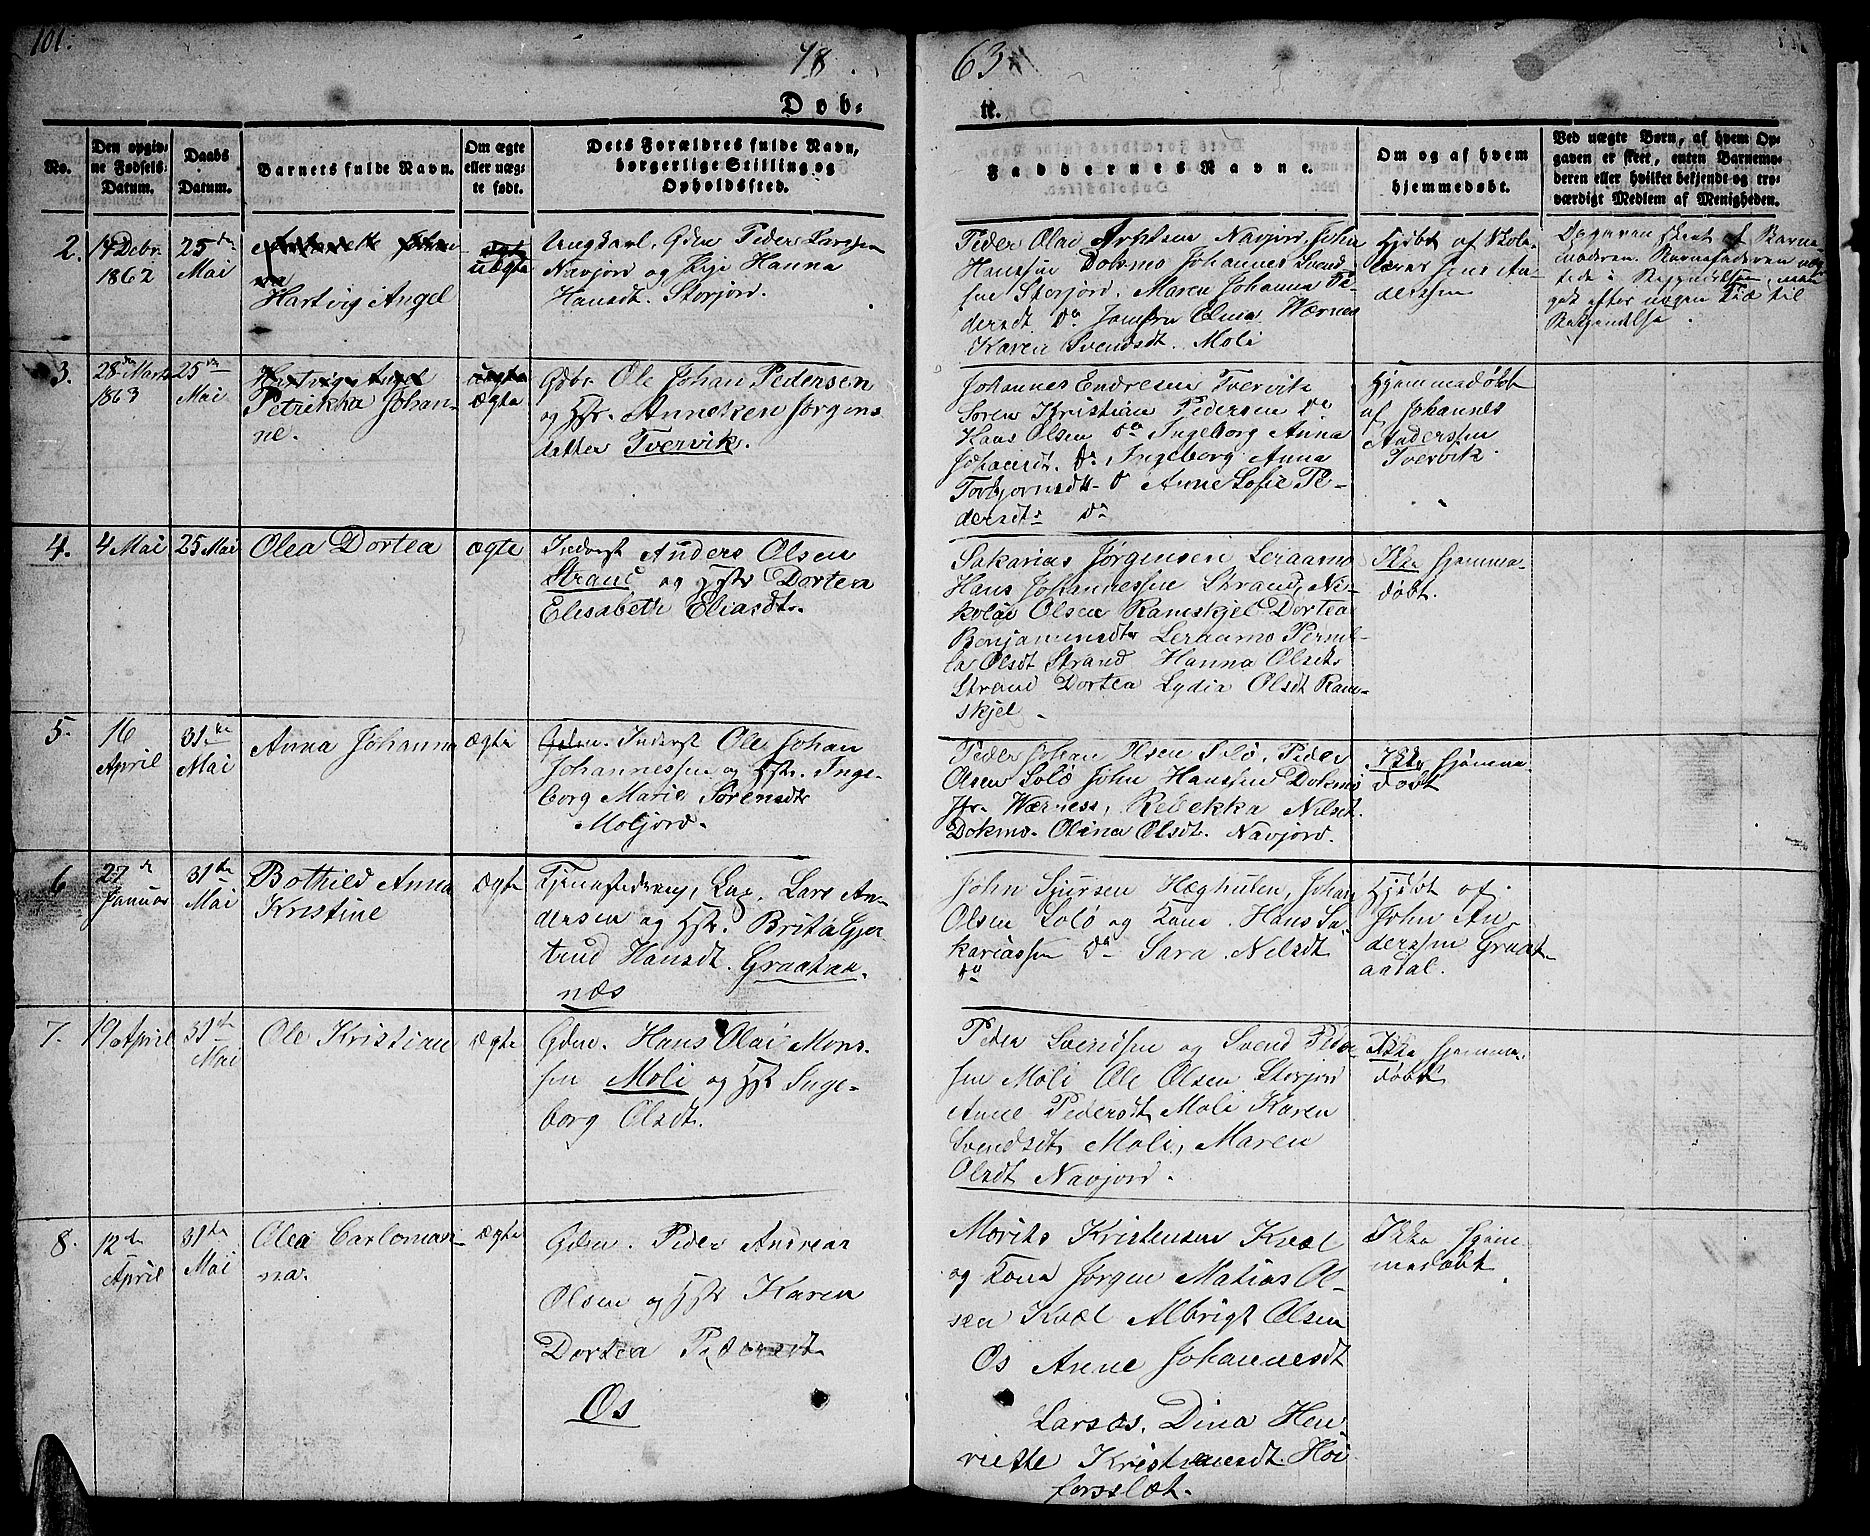 101.
18
63.
Døb-
te.
No.
Den opgiv-
ne Fødsels-
Datum.
Daabs
Datum.
Barnets fulde Navn.
Om ægte
eller uæg-
te født.
Dets Forældres fulde Navn,
borgerlige Stilling og
Opholdssted.
Faddernes Navne.
Om og af hvem
hjemmedøbt.
Ved uægte Børn, af hvem Op-
gaven er skeet, enten Barnemo-
deren eller hvilket bekjendt og tro-
værdigt Medlem af Menigheden.
2.
14 Debr.
1862
25de
Mai
Hartvig Angel
uægte
Ungkarl, Gdm Peder Larssen
Navjord og Pige Hanna
Hansdt. Storjord.
Peder Olai Arntsen Navjord, John
Hanssen Dokmo Johannes Svend-
sen Storjord. Maren Johanna Pe-
dersdt. do Olina Wærnes
Karen Svendsdt. Moli
Hjdøbt af Skole-
lærer Jens An-
derssen
Opgaven skeet af Barne-
moderen. Barnefaderen
til
Bekjendelse.
3.
28de Marts
1863
25de
Mai
Hartvig Angel
Petrikka Johan-
ne.
uægte
ægte
Gdbr. Ole Johan Pedersen
og Hstr. Anneken Jørgens
datter Tvervik.
Johannes Endresen Tvervik
Søren Kristian Pedersen do
Hans Olsen do Ingeborg Anna
do. Ingeborg Anna
Torbjørnsdt. do Anne Sofie Pe-
dersdt. do
Hjemmedøbt
af Johannes
Anderssen
Tvervik.
4.
4 Mai
25 Mai
Olea Dortea
ægte
Inderst Anders Olsen
Strand og Hstr Dortea
Elisabeth Eliasdt.
Sakarias Jørgensen Leraamo
Hans Johannessen Strand, Ni-
kolai Olsen Ramskjel Dortea
Benjaminsdtr Leraamo Pernil-
la Olsdt Strand Hanna Olsdt
Strand Dortea Lydia Olsdt Ram-
skjel.
Ikke hjemme-
døbt.
5.
16
April
31te
Mai
Anna Johanna
ægte
Gdm. Inderst Ole Johan
Johannessen og Hstr. Inge-
borg Marie Sørensdtr
Moljord.
Peder Johan Olsen Solø, Peder
Olsen Solø John Hanssen Dokmo
Wærness, Rebekka Nilsdt.
Dokmo. Olina Olsdt. Navjord.
Ikke hjemme-
døbt
6
27de
Januar
31te
Mai
Bothild Anna
Kristine
ægte
Lars An-
dersen og Hstr. Brita Gjer
trud Hansdt. Graatæn-
næs
John Sjursen Hæghulen, Johan
Olsen Solø og Kone. Hans Sa-
kariassen do Sara Nilsdt
do
Hjdøbt af
John An-
derssen Graat-
aadal.
7.
19de April
31te
Mai
Ole Kristian
ægte
Gdm. Hans Olai Mons-
sen Moli og Hstr Inge-
borg Olsdt.
Peder Sverdsen og Svend Peder-
sen Moli Ole Olsen Storjord
Anne Pedersdt Moli Karen
Svendsdt. Moli, Maren
Olsdt Navjord.
Ikke hjemme-
døbt
8.
12te
April
31te
Mai
Olea Carloman-
na.
ægte
Gdm. Peder Andreas
Olsen og Hstr Karen
Dortea Pedersdt.
Os
Morits Kristensen Kvæl
og Kone Jørgen Matias Ol-
sen Kvæl Albrigt Olsen
Os Anne Johannesdt
Larsos. Dina Hen
riette Kristensdt. Høi
forsslet.
Ikke hjem-
medøbt